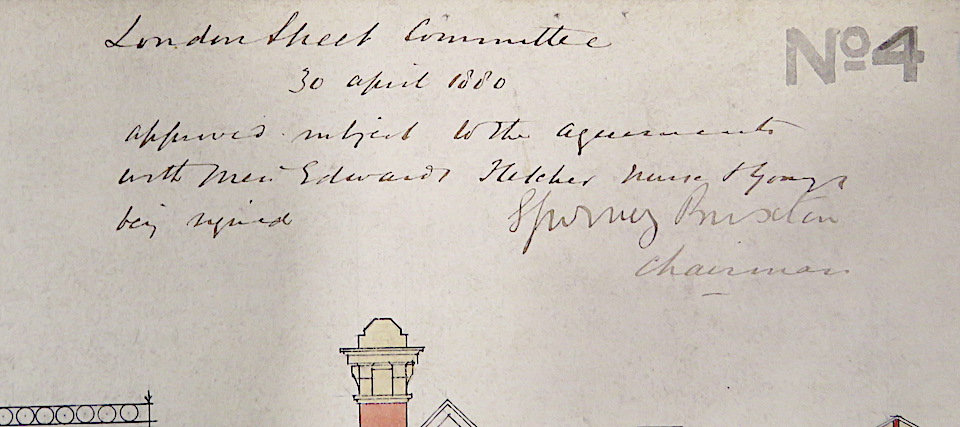 London Street Committee
No4
30 april 1880
approved subject to the agreements
with Mess Edwards Fletcher Nurse & Youngs
being signed
Buxton
Chairman